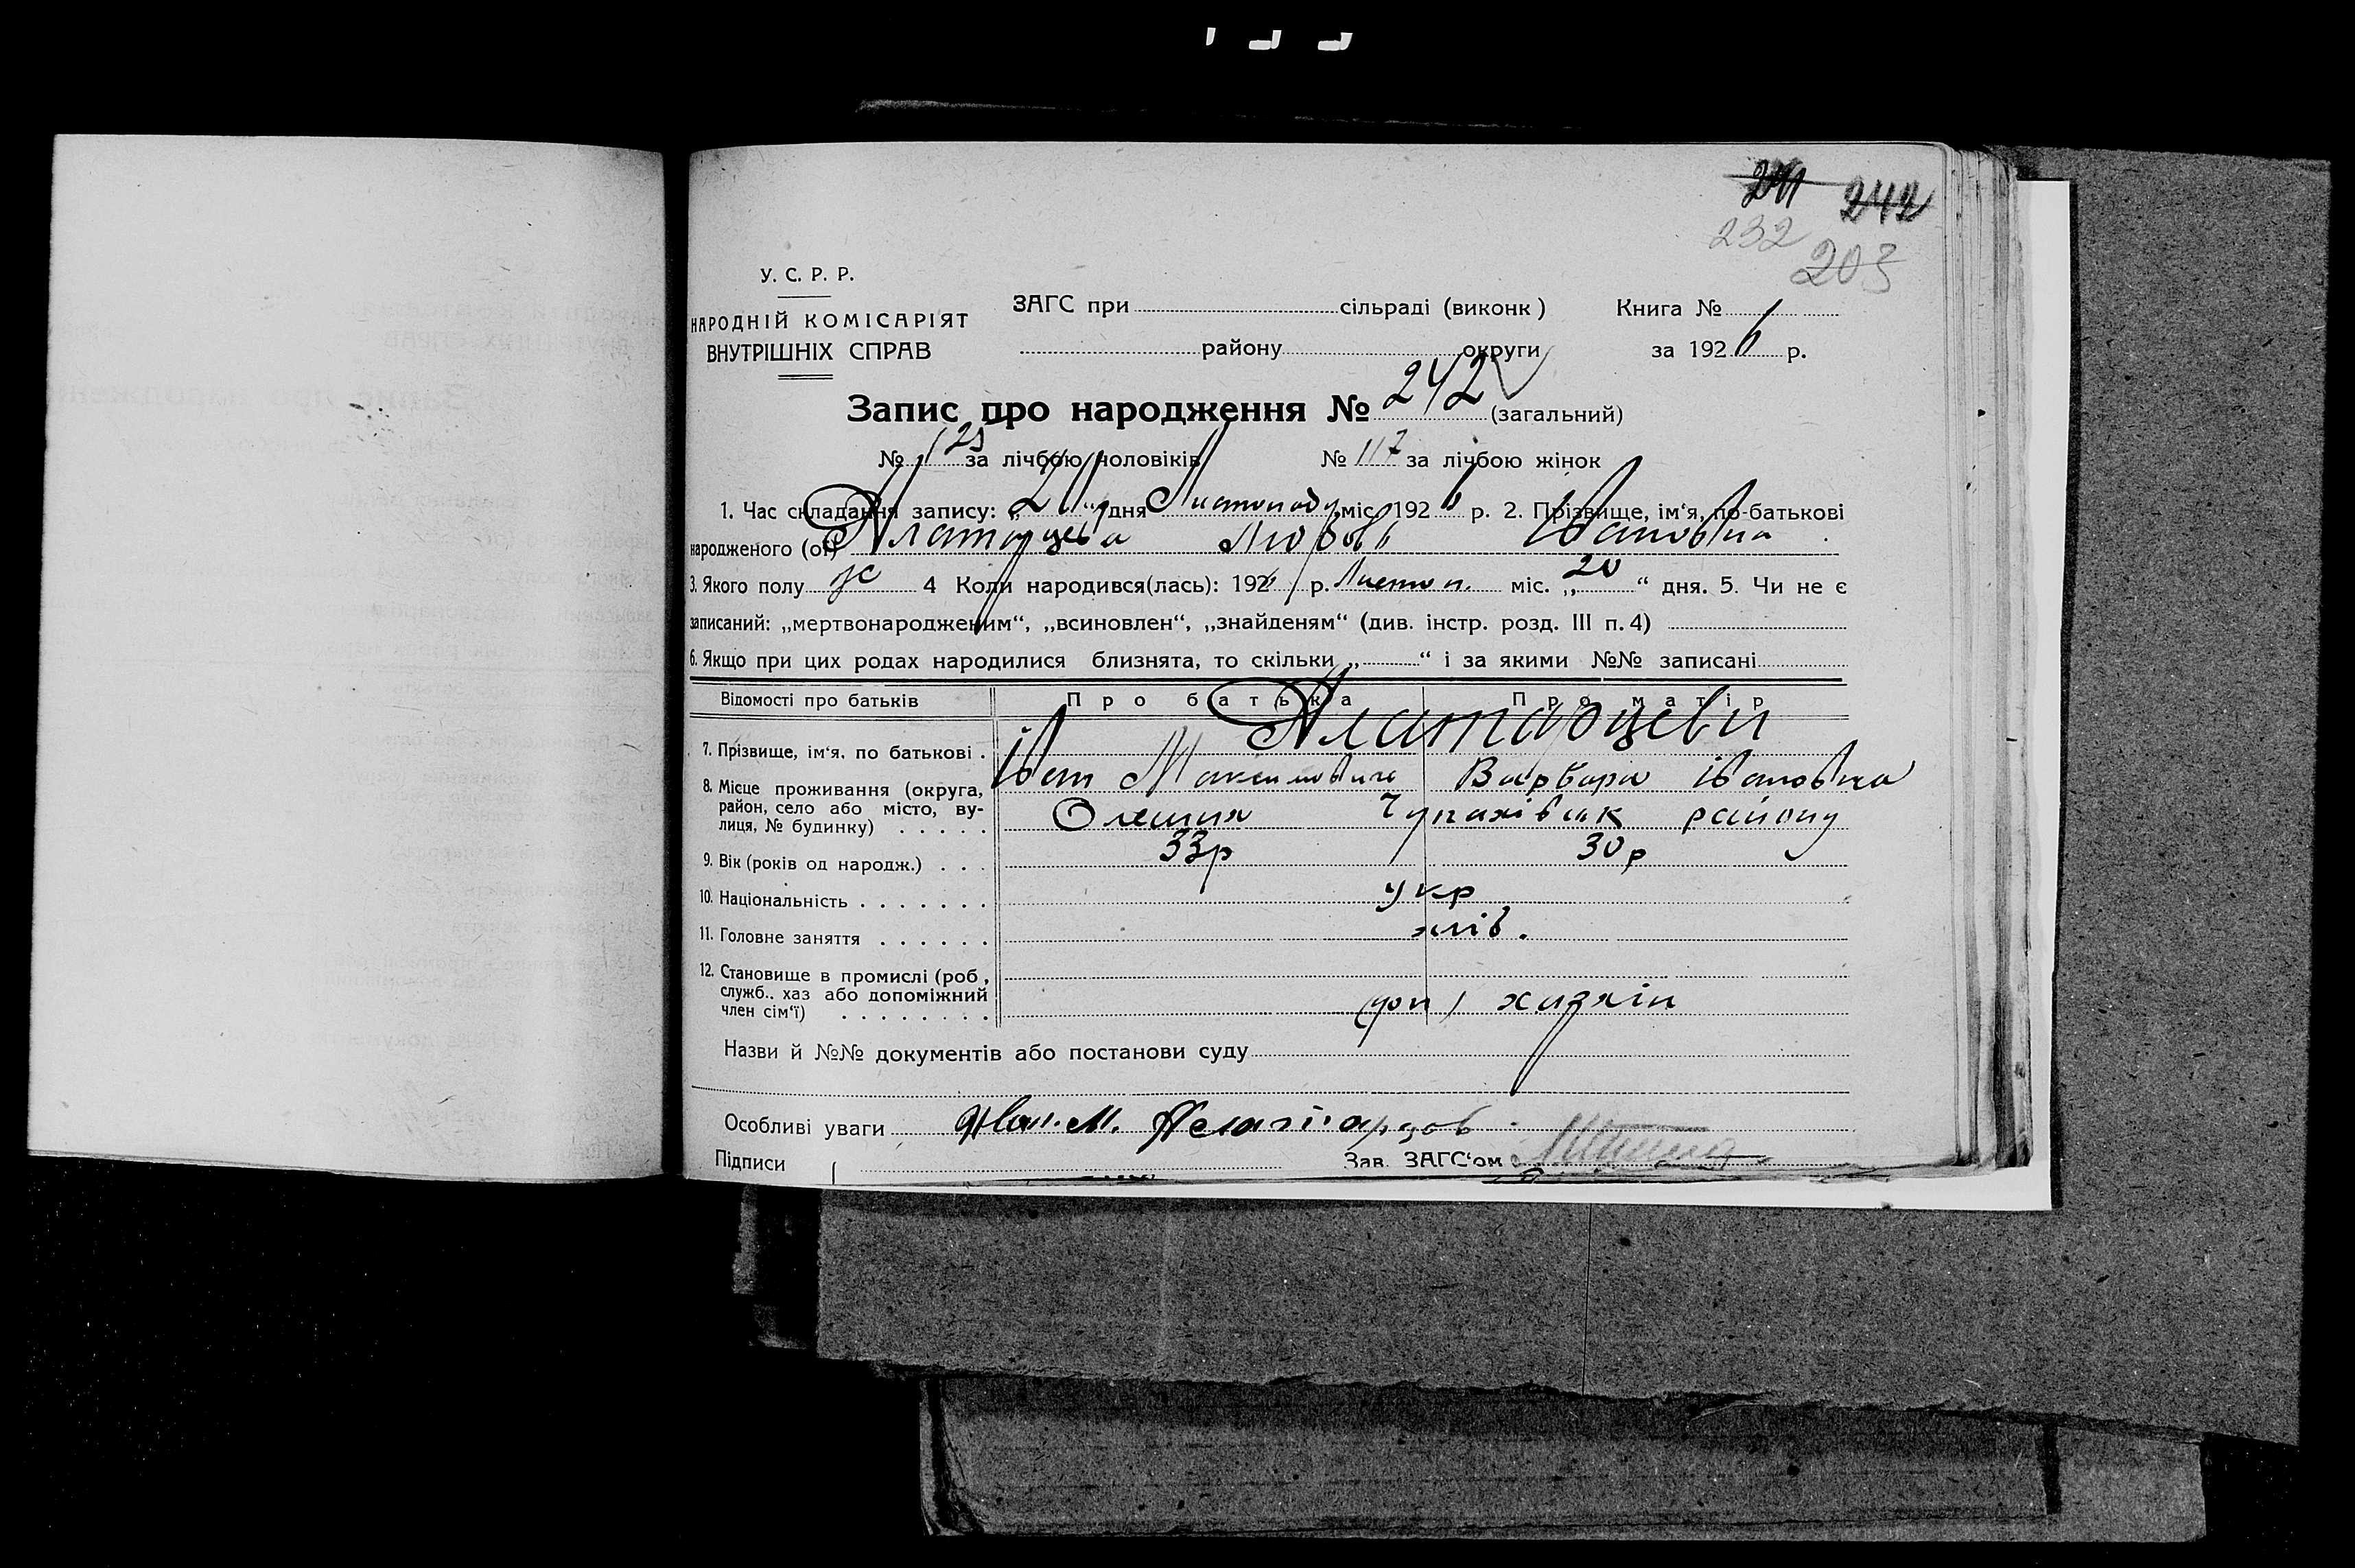 241 242
232 203
У. С. Р. Р.
НАРОДНІЙ КОМІСАРІЯТ
ВНУТРІШНІХ СПРАВ
ЗАГС при сільраді (виконк)
району округи
Книга №
за 1926 р.
Запис про народження № 242 (загальний)
№ 125 за лічбою чоловіків № 117 за лічбою жінок
1. Час складання запису: „ “ дня Листопаду міс. 1926 р. 2. Прізвище, ім‘я, по-батькові
народженого (ої) Алатарцева Любовь Івановна
3. Якого полу ж 4 Коли народився(лась): 1926 р. Листоп. міс. „20“ дня. 5. Чи не є
записаний: „мертвонародженим“, „всиновлен“, „знайденям“ (див. інстр. розд. III п. 4)
6. Якщо при цих родах народилися близнята, то скільки „ “ і за якими №№ записані
Відомості про батьків Про батька Про матір
7. Прізвище, ім‘я, по батькові . Алатарцеви
Іван Максимович Варвара Івановна
8. Місце проживання (округа, район, село або місто, вулиця, № будинку) . . . . . Олешня Чупахівськ району
9. Вік (років од народж.) . . . 33р 30р
10. Національність . . . . . . . укр
11. Головне заняття . . . . . . хліб.
12. Становище в промислі (роб, служб.. хаз або допоміжний член сім‘ї) . . . . . . . . хазяін
Назви й №№ документів або постанови суду
Особливі уваги Иван. М.
Підписи Зав. ЗАГС‘ом